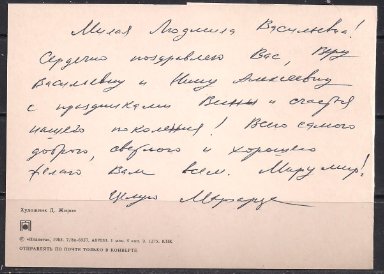 Милая Людмила Васильевна!
Сердечно поздравляю Вас, Веру
Васильевну и Нину Алексеевну
с праздниками Весны и счастья
нашего поколения! Всего самого
доброго, светлого и хорошего
желаю Вам всем. Миру мир!
Целую
Художник Д. Жирин
1983.
ОТПРАВЛЯТЬ ПО ПОЧТЕ ТОЛЬКО В КОНВЕРТЕ